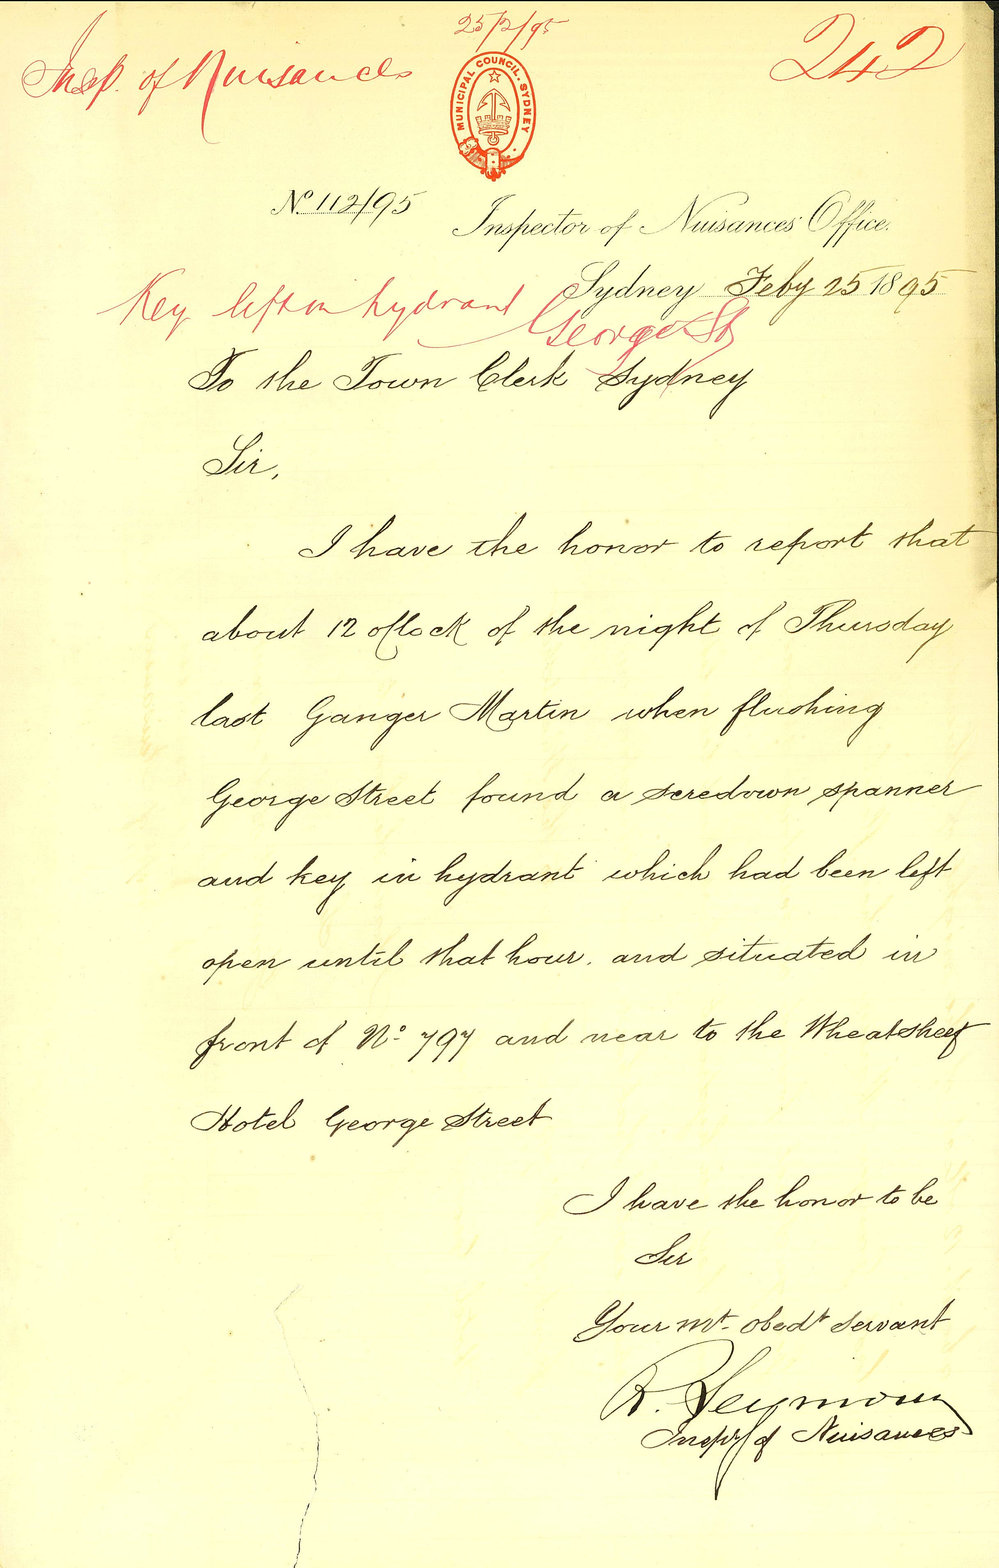 25/2/95
Insp. of Nuisances
242
MUNICIPAL COUNCIL. SYDNEY
No. 112/95
Inspector of Nuisances' Office.
Sydney Feby 25 1895
Key left in hydrant
George St
To the Town Clerk Sydney
Sir,
I have the honor to report that
about 12 oclock of the night of Thursday
last Ganger Martin when flushing
George Street found a scredown spanner
and key in hydrant which had been left
open until that hour. and situated in
front of No. 797 and near to the Wheatsheef
Hotel George Street
I have the honor to be
Sir
Your mt. obedt servant
R. Seymour
Inspr of Nuisances